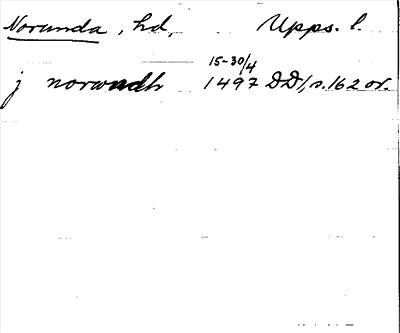 Norunda, hd, Upps. l.
15-30/4
j norwndh 1497 DD1, s. 162 or.